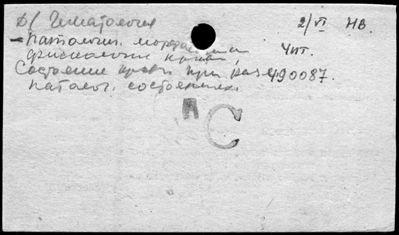 Д( Гематология 2/VI НВ.
– Патологич. морфология Чит.
физиология крови,
Состояние крови при разл. 490087.
патолог. состояниях.
П С